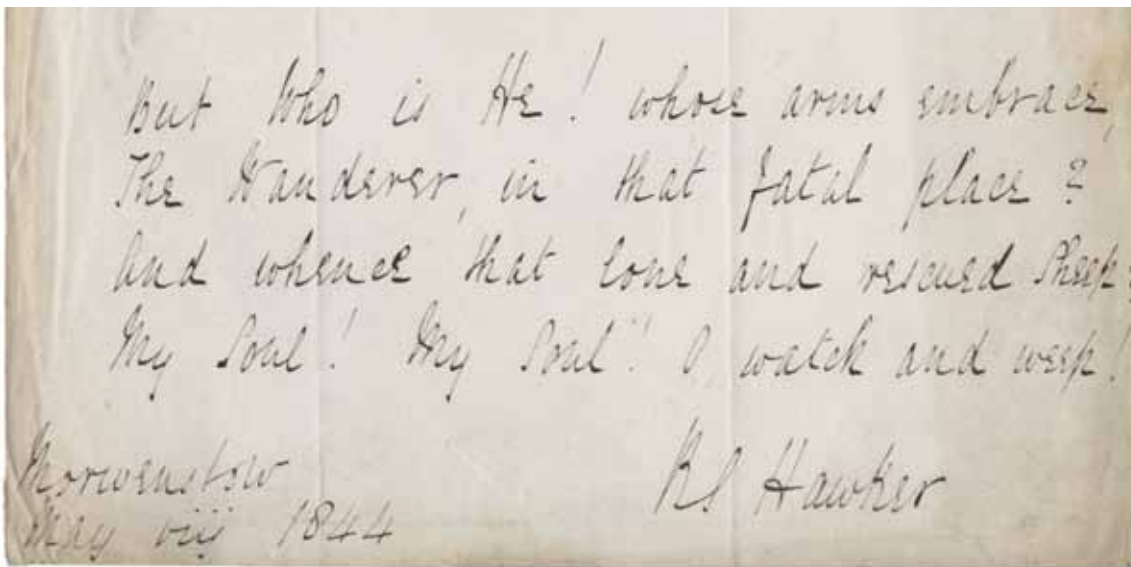 But Who is He! whose arms embrace,
The Wanderer, in that fatal place?
And whence that lone and rescued Sheep?
My Soul! My Soul!! O watch and weep!
Morwenstow
May viij 1844
RS Hawker